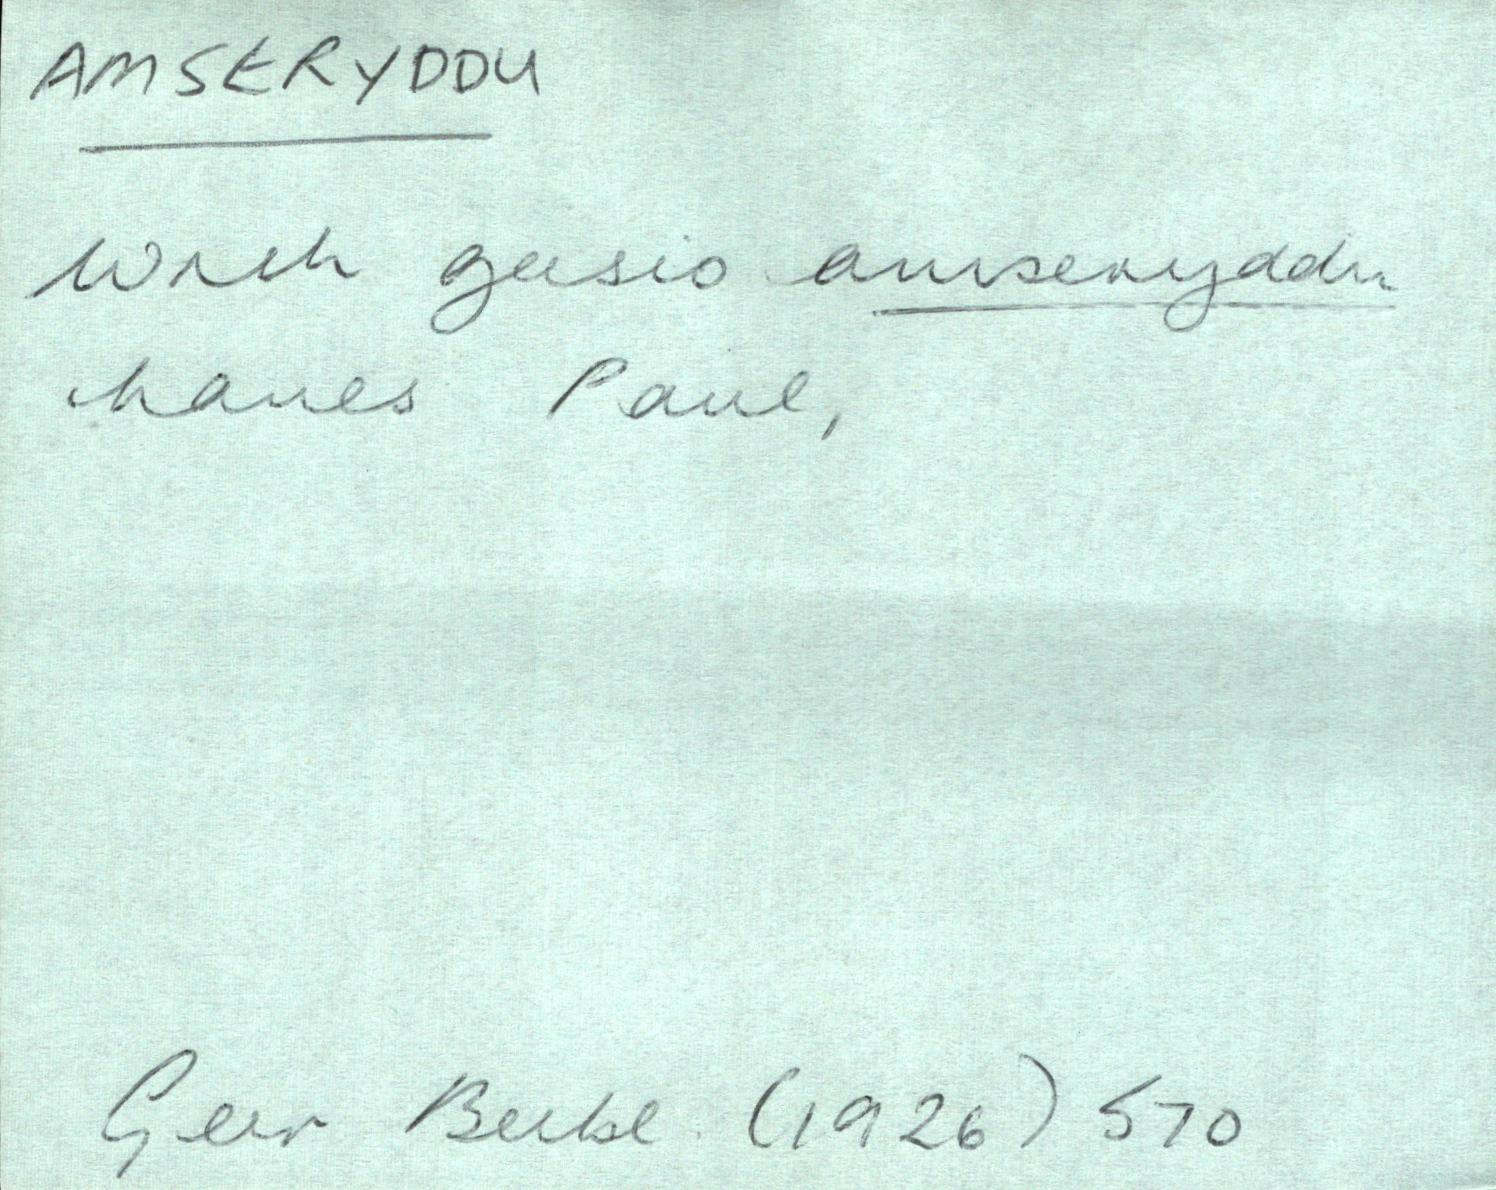 AMSERYDDU
Wrth geisio amseryddu
hanes Paul,
Geir Beibl (1926) 570